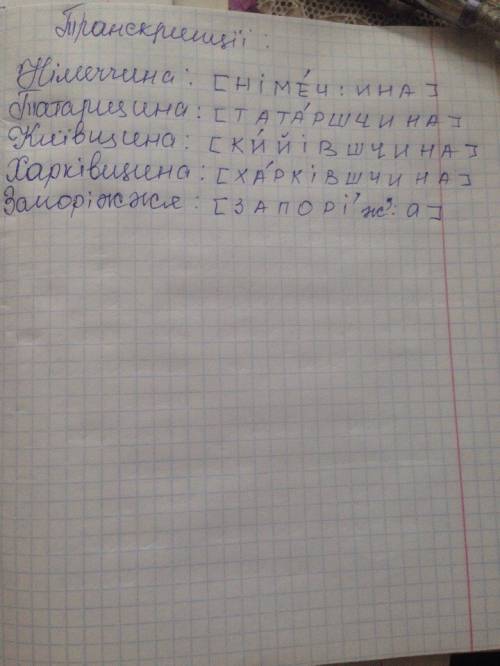 Транскрипції:
Німеччина: [НІМЕ́Ч:ИНА]
Татарщина: [ТАТА́РШЧИНА]
Київщина: [КИ́ЙІВШЧИНА]
Харківщина: [ХА́РКІВШЧИНА]
Запоріжжя: [ЗАПОРІ́Ж':А]